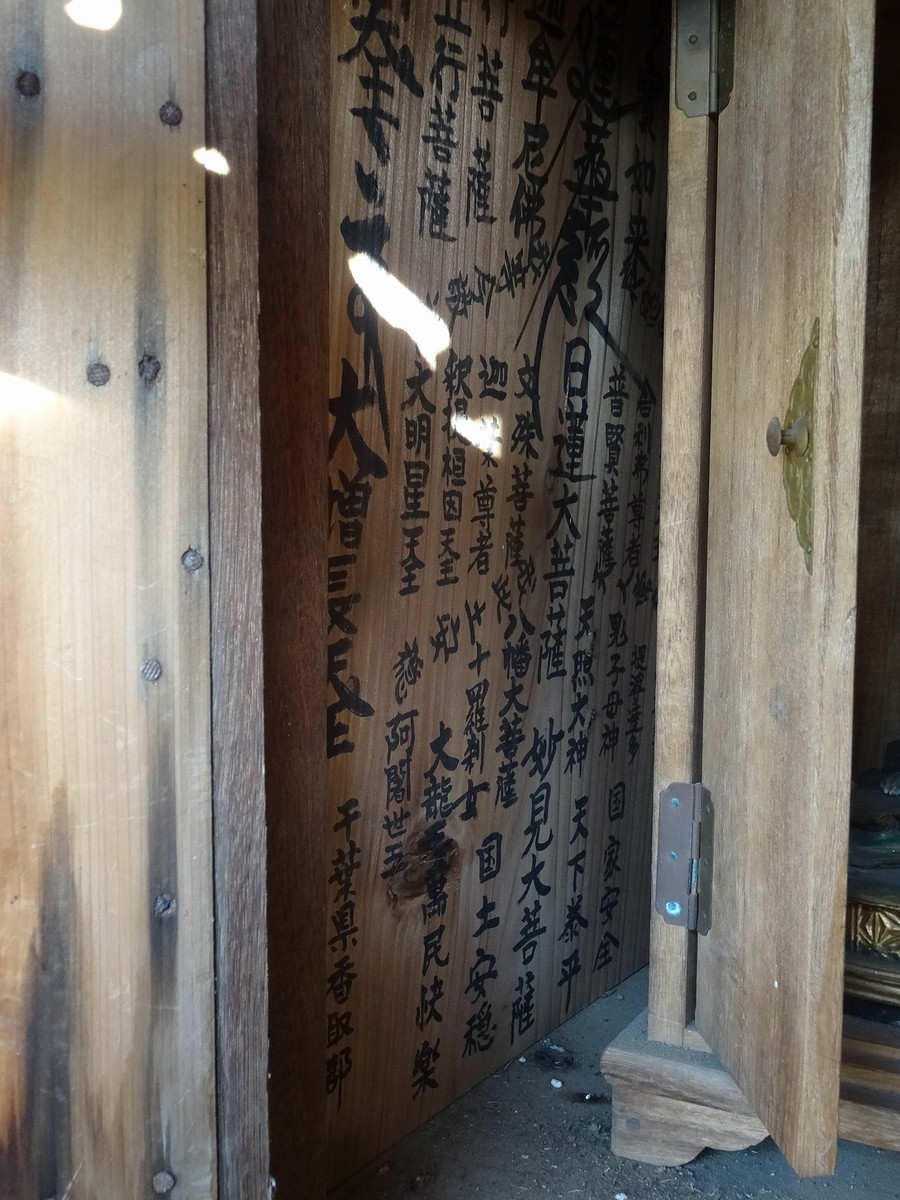 寶如来
舍利弗尊者
提婆達多
普賢菩薩
鬼子母神
国家安全
天照大神
天下泰平
蓮華経
日蓮大菩薩
妙見大菩薩
迦牟尼佛
文殊菩薩
八幡大菩薩
行菩薩
迦葉尊者
十羅刹女
国土安穏
行菩薩
釈提桓因天王
大龍王
萬民快樂
大明星天王
阿闍世王
大增長天王
千葉県香取郡